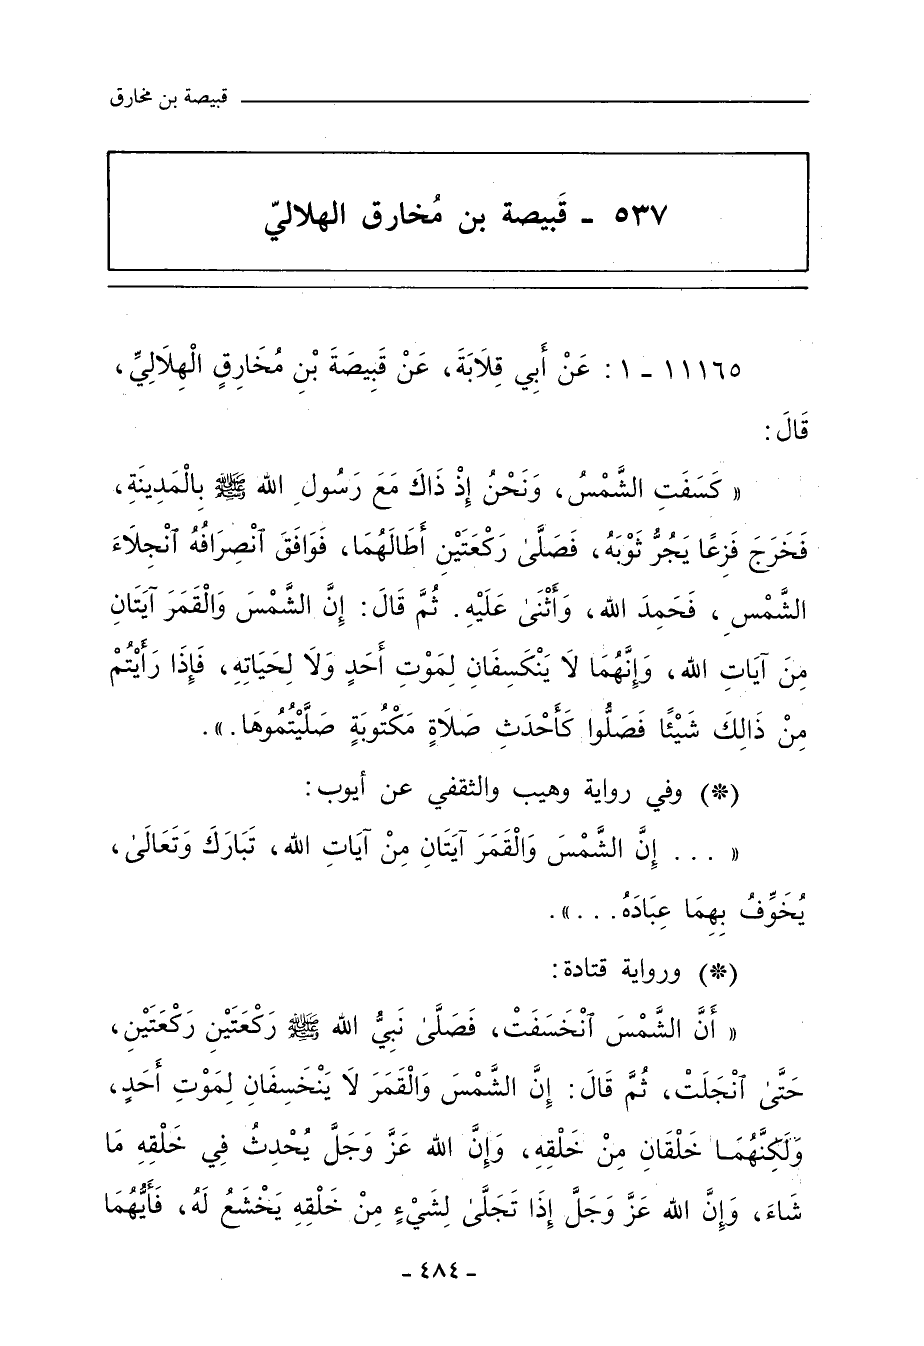 قبيصة بن مخارق
٥٣٧ - قَبيصة بن مُخارق الهلاليّ
١١١٦٥ - ١: عَنْ أَبِي قِلَابَةَ، عَنْ قَبِيصَةَ بْنِ مُخَارِقٍ الْهِلَالِيِّ،
قَالَ:
« كَسَفَتِ الشَّمْسُ، وَنَحْنُ إِذْ ذَاكَ مَعَ رَسُولِ الله ﷺ بِالْمَدِينَةِ،
فَخَرَجَ فَزِعًا يَجُرُّ ثَوْبَهُ، فَصَلَّىٰ رَكْعَتَيْنِ أَطَالَهُمَا، فَوَافَقَ ٱنْصِرَافُهُ ٱنْجِلَاءَ
الشَّمْسِ، فَحَمِدَ الله، وَأَثْنَىٰ عَلَيْهِ. ثُمَّ قَالَ: إِنَّ الشَّمْسَ وَالْقَمَرَ آيَتَانِ
مِنَ آيَاتِ الله، وَإِنَّهُمَا لَا يَنْكَسِفَانِ لِمَوْتِ أَحَدٍ وَلَا لِحَيَاتِهِ، فَإِذَا رَأَيْتُمْ
مِنْ ذَالِكَ شَيْئًا فَصَلُّوا كَأَحْدَثِ صَلَاةٍ مَكْتُوبَةٍ صَلَّيْتُمُوهَا.».
(*) وفي رواية وهيب والثقفي عن أيوب:
« ... إِنَّ الشَّمْسَ وَالْقَمَرَ آيَتَانِ مِنْ آيَاتِ الله، تَبَارَكَ وَتَعَالَىٰ،
يُخَوِّفُ بِهِمَا عِبَادَهُ...».
(*) ورواية قتادة:
« أَنَّ الشَّمْسَ ٱنْخَسَفَتْ، فَصَلَّىٰ نَبِيُّ الله ﷺ رَكْعَتَيْنِ رَكْعَتَيْنِ،
حَتَّىٰ ٱنْجَلَتْ، ثُمَّ قَالَ: إِنَّ الشَّمْسَ وَالْقَمَرَ لَا يَنْخَسِفَانِ لِمَوْتِ أَحَدٍ،
وَلَكِنَّهُمَا خَلْقَانِ مِنْ خَلْقِهِ، وَإِنَّ الله عَزَّ وَجَلَّ يُحْدِثُ فِي خَلْقِهِ مَا
شَاءَ، وَإِنَّ الله عَزَّ وَجَلَّ إِذَا تَجَلَّىٰ لِشَيْءٍ مِنْ خَلْقِهِ يَخْشَعُ لَهُ، فَأَيُّهُمَا
- ٤٨٤ -